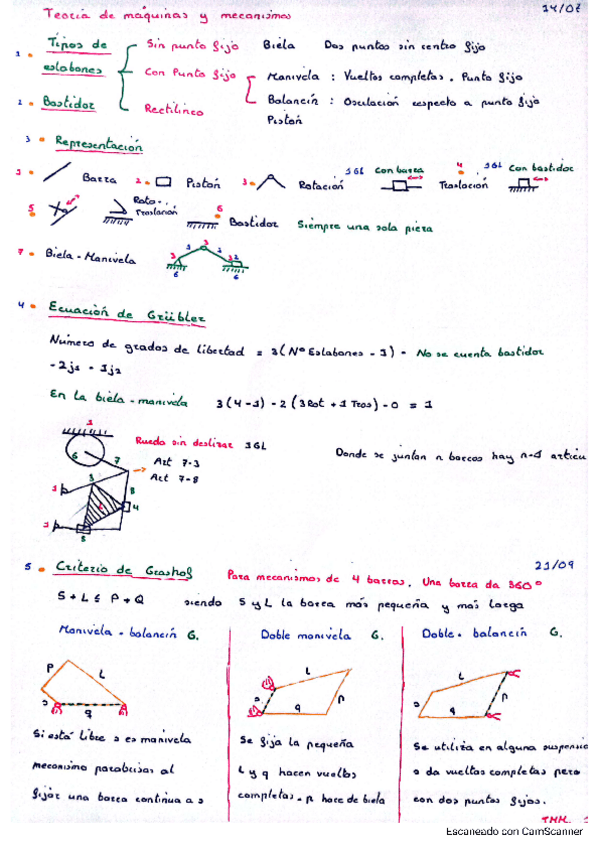 Teoría de máquinas y mecanismos
14/07
1. Tipos de eslabones
Sin punto fijo Biela Dos puntos sin centro fijo
Con Punto fijo
Manivela : Vueltas completas. Punto fijo
Balancín : Osculación respecto a punto fijo
Rectilíneo Pistón
2. Bastidor
3 Representación
1. Barra 2. Pistón 3. Rotación 1GL con barra Traslación 4 1GL con bastidor
5 Roto-Traslación 6 Bastidor Siempre una sola pieza
7. Biela-Manivela
3 3 3 3 2
6 6
4 Ecuación de Grübler
Número de grados de libertad = 3(Nº Eslabones - 1) - No se cuenta bastidor
- 2j1 - 1j2
En la biela-manivela 3(4-1) - 2(3Rot + 1Tras) - 0 = 1
1
Rueda sin deslizar 1GL
6 7
Art 7-3
Art 7-8
Donde se juntan n barras hay n-1 articu
8
4
5. Criterio de Grashof
21/09
Para mecanismos de 4 barras. Una barra da 360º
S + L ≤ P + Q siendo S y L la barra más pequeña y más larga
Manivela-balancín G.
Doble manivela G.
Doble-balancín G.
P L s q
L s q p
L s q p
Si está libre s es manivela
mecanismo parabrisas al
fijar una barra continua a s
Se fija la pequeña
L y q hacen vueltas
completas. p hace de biela
Se utiliza en alguna suspensió
s da vueltas completas pero
con dos puntos fijos.
TMM.
Escaneado con CamScanner